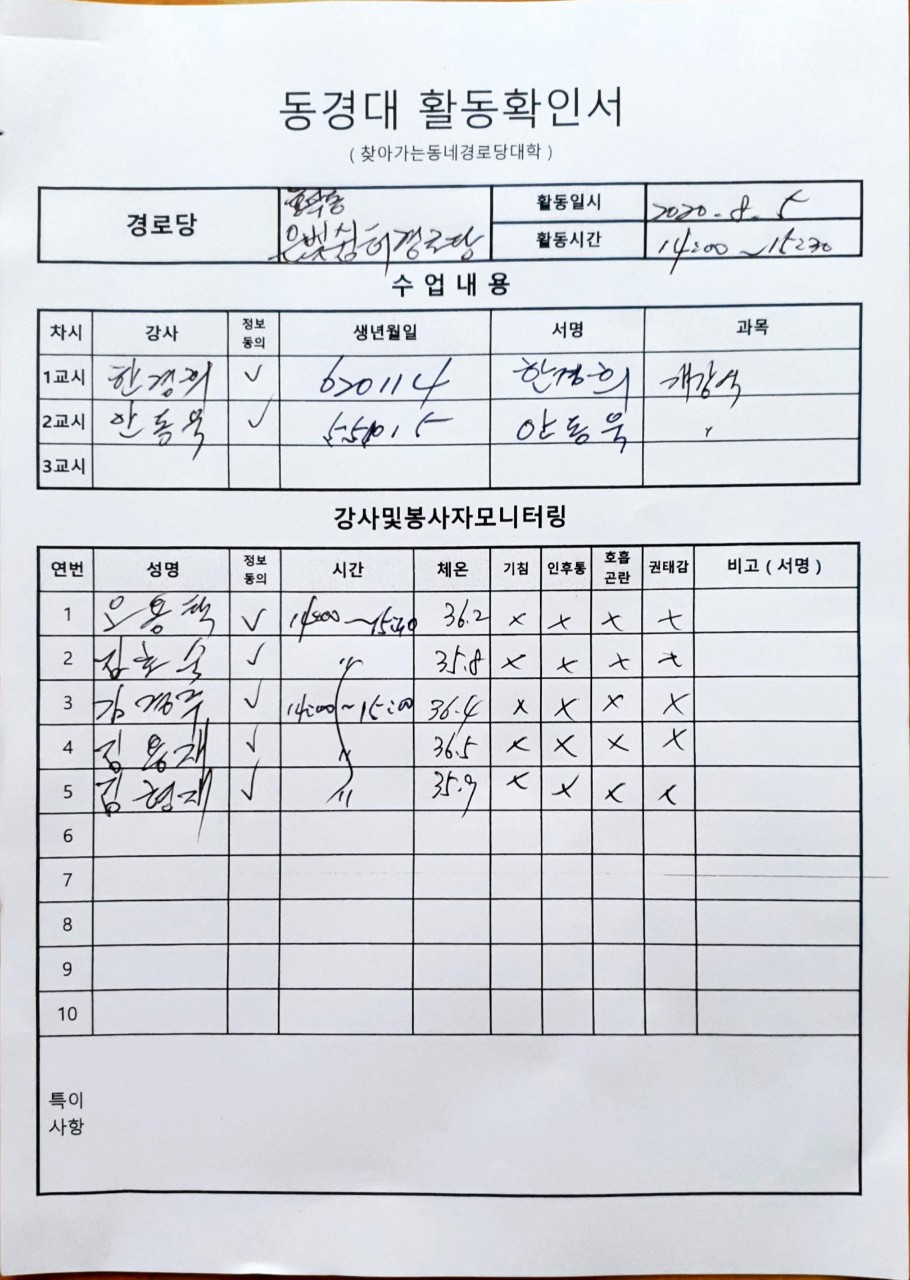 동경대 활동확인서
( 찾아가는동네경로당대학 )
경로당 활동일시 2020-8-5
활동시간 14:00 ~ 15:30
수 업 내 용
차시 강사 정보동의 생년월일 서명 과목
1교시 한경희 ✓ 620114 한경희
2교시 안동욱 ✓ 안동욱 〃
3교시
강사및봉사자모니터링
연번 성명 정보동의 시간 체온 기침 인후통 호흡곤란 권태감 비고 ( 서명 )
1 ✓ 14:00 ~ 15:40 36.2 × × × ×
2 ✓ 〃 35.8 × × × ×
3 ✓ 14:00 ~ 15:00 36.4 × × × ×
4 ✓ 〃 36.5 × × × ×
5 ✓ 〃 35.9 × × × ×
6
7
8
9
10
특이
사항